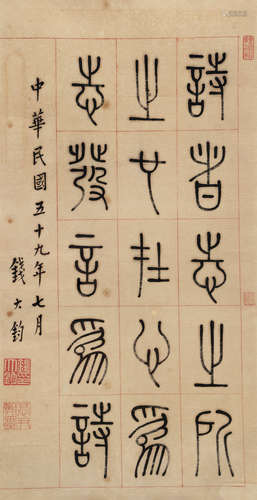 詩者志之所
之也在心爲
志發言爲詩
中華民國五十九年七月
錢大鈞